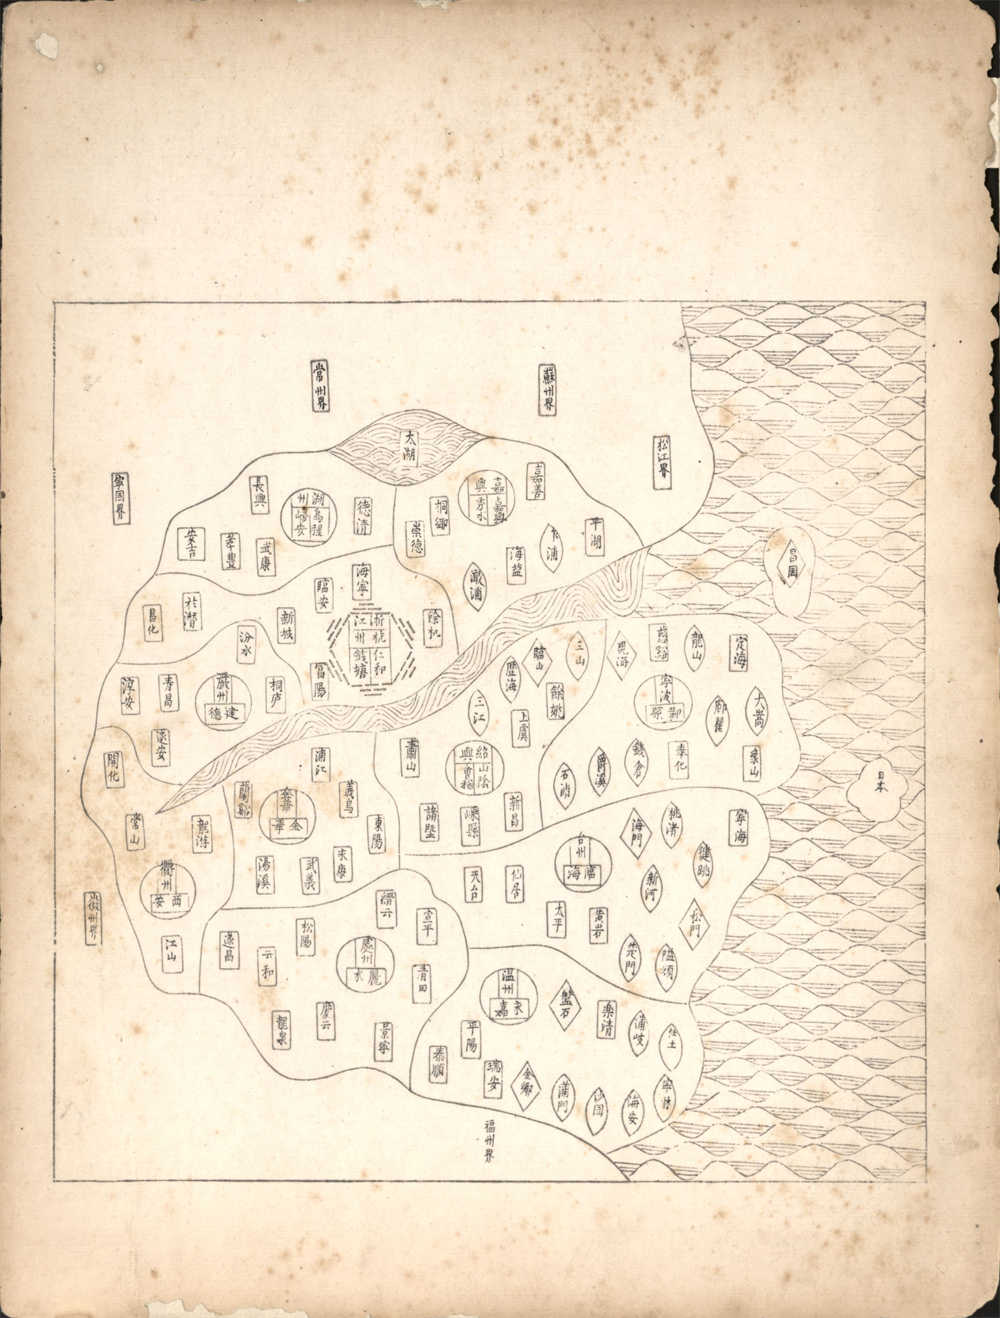 常州界
蘇州界
松江界
太湖
寧国界
長興
湖州
烏程
安
德清
桐鄉
崇德
嘉興
嘉善
秀水
平湖
乍浦
海鹽
澉浦
安吉
孝豐
武康
臨安
海寧
昌化
於潛
新城
汾水
富陽
浙江
杭州
仁和
錢塘
餘杭
昌国
淳安
壽昌
嚴州
建德
桐庐
遂安
開化
歷海
臨山
三山
觀海
慈谿
龍山
定海
三江
餘姚
上虞
寧波
大嵩
象山
奉化
錢倉
爵溪
石浦
蕭山
紹興
山陰
會稽
諸暨
嵊縣
新昌
日本
浦江
蘭谿
金華
金華
義烏
東陽
永康
武義
湯溪
常山
龍游
衢州
西安
江山
徽州界
海門
桃渚
寧海
健跳
新河
松門
台州
臨海
天台
仙居
太平
黄岩
楚門
隘頑
縉云
宣平
松陽
遂昌
云和
處州
麗水
青田
龍泉
慶云
景寧
温州
永嘉
盤石
樂清
蒲岐
平陽
泰順
瑞安
金鄉
蒲門
沙园
海安
寧村
福州界